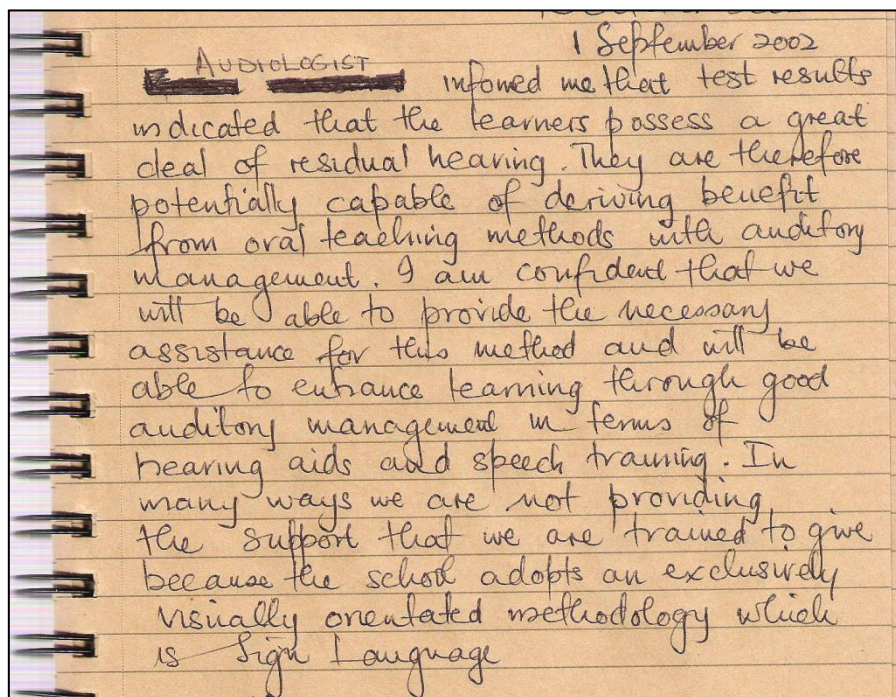 1 September 2002
AUDIOLOGIST
infomed me that test results
indicated that the learners possess a great
deal of residual hearing. They are therefore
potentially capable of deriving benefit
from oral teaching methods with auditory
management. I am confident that we
will be able to provide the necessary
assistance for this method and will be
able to enhance learning through good
auditory management in terms of
hearing aids and speech training. In
many ways we are not providing
the support that we are trained to give
because the school adopts an exclusively
visually orientated methodology which
is Sign Language